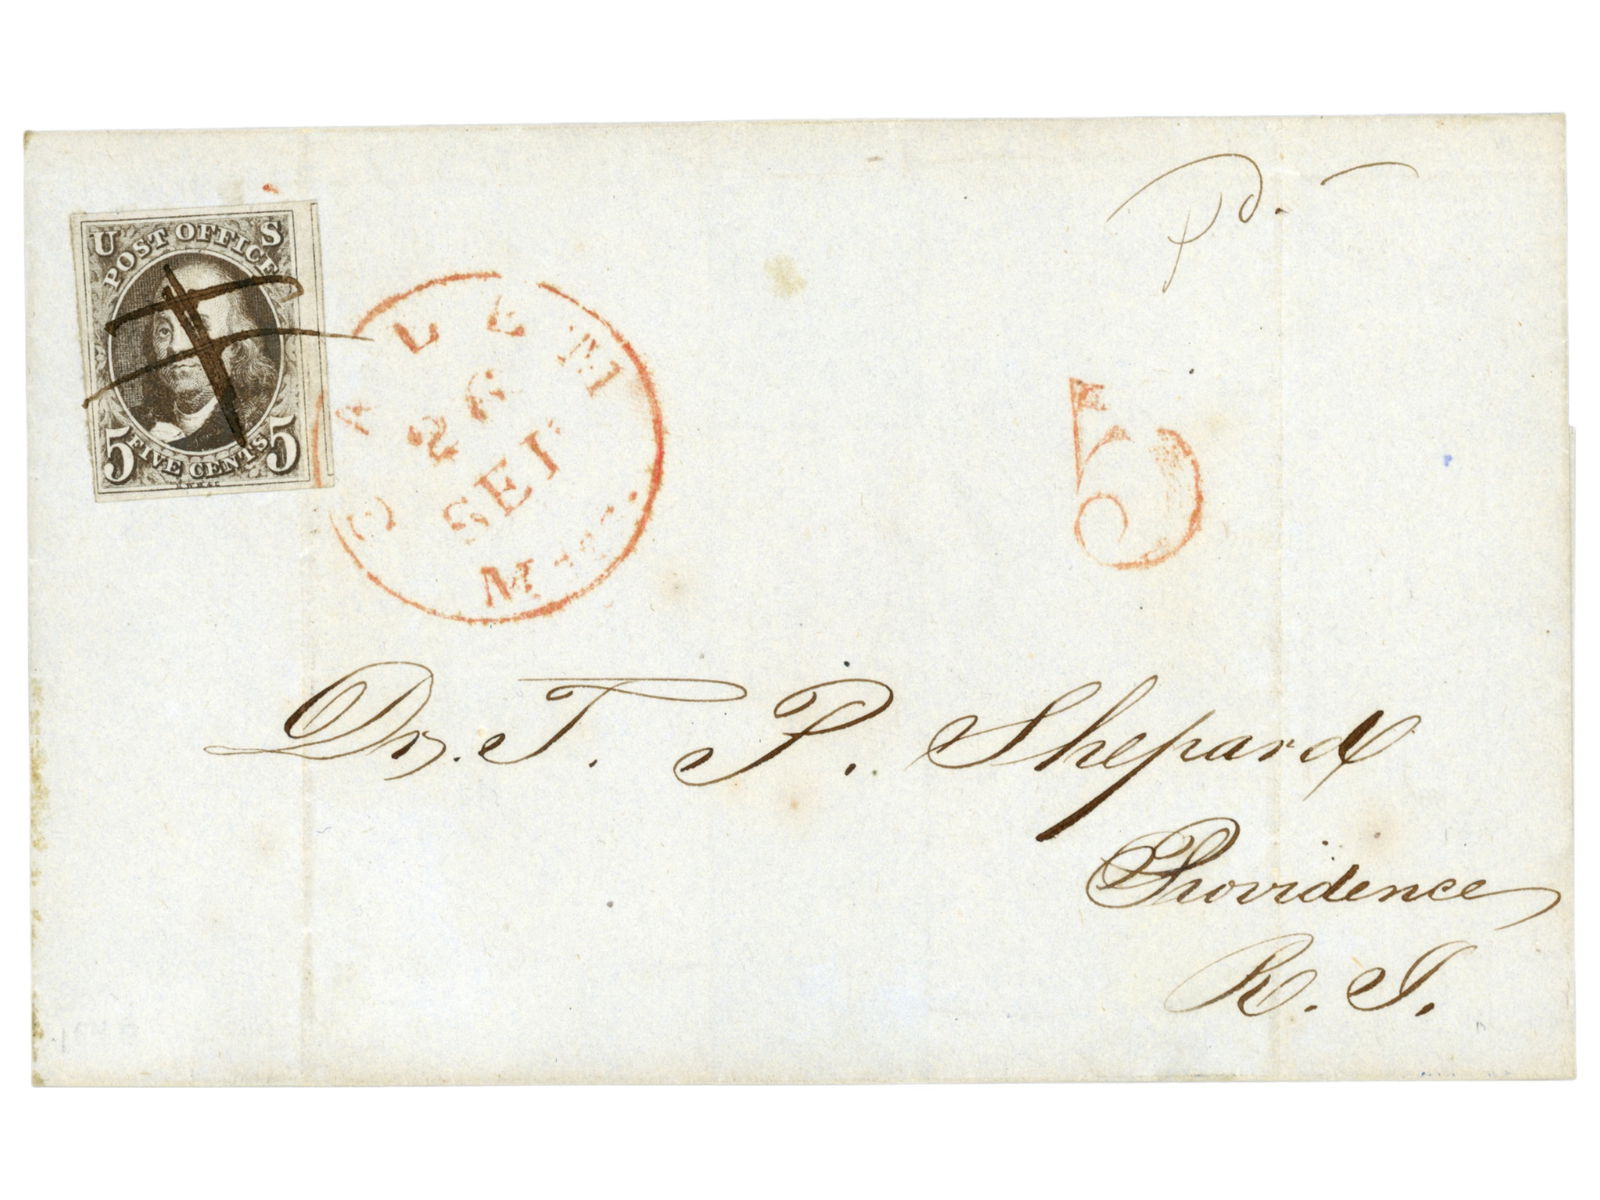 Pd.
U S
POST OFFICE
5 FIVE CENTS 5
SALEM
26
SEP
Mass.
5
Dr. T. P. Shepard
Providence
R. I.